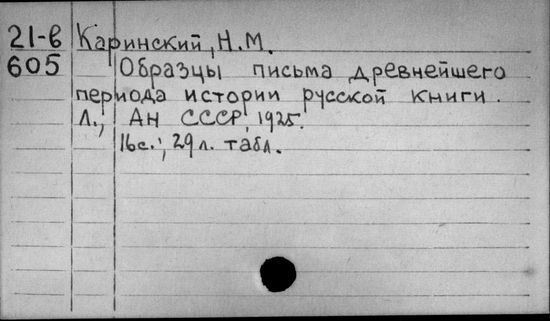 21-в Каринский, Н.М.
605 Образцы письма древнейшего
периода истории русской книги.
Л., АН СССР, 1925.
16с.; 29 л. табл.